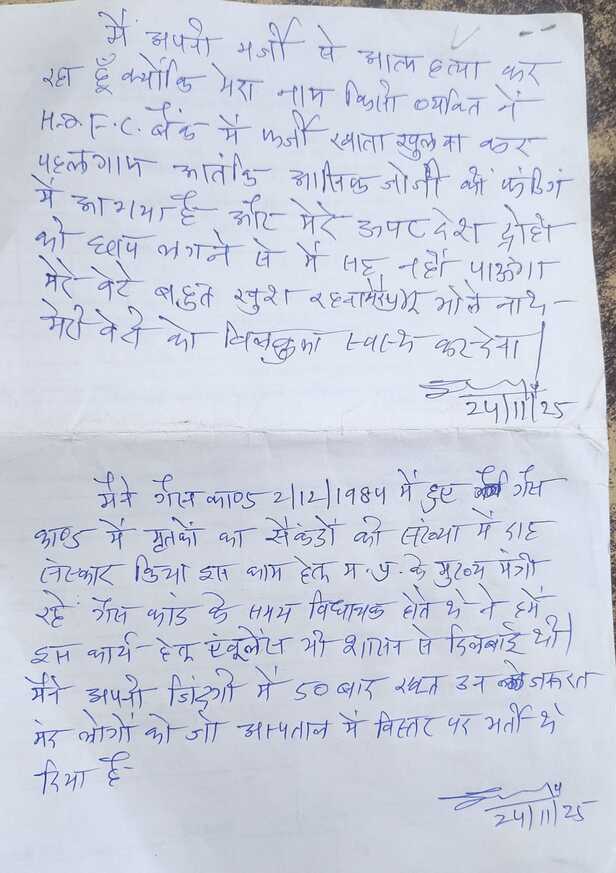 मैं अपनी मर्जी से आत्म हत्या कर
रहा हूँ क्योंकि मेरा नाम किसी व्यक्ति नें
H.D.F.C. बैंक में फर्जी खाता खुलवा कर
पहलगाम आतंकि आसिफ जो भी की फंडिंग
में आ गया है और मेरे ऊपर देश द्रोही
की छाप लगने से में सह नहीं पाऊंगा
मेरे बेटे बहुत खुश रहना मेरे प्रभु भोले नाथ -
मेरी बेटी को बिलकुल स्वस्थ कर देना
24/11/25
मैने गैस काण्ड 2/12/1984 में हुए गैस
काण्ड में मृतकों का सैकंडों की संख्या में दाह
संस्कार किया इस काम हेतु म.प्र. के मुख्य मंत्री
रहे गैस कांड के समय विधायक होते थे ने हमें
इस कार्य हेतु एंबूलेंस भी शासन से दिलबाई थी
मैंने अपनी जिंदगी में 50 बार रक्त उन जरूरत
मंद लोगों को जो अस्पताल में बिस्तर पर भर्ती थे
दिया है
24/11/25